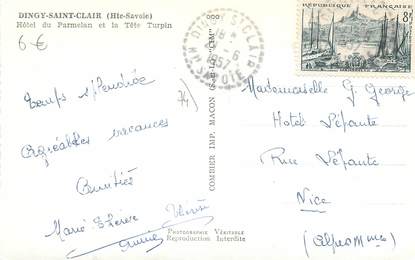 DINGY-SAINT-CLAIR (Hte-Savoie)
Hôtel du Parmelan et la Tête Turpin
6 €
74
Temps splendide
Agréables vacances
Amitiés
Marie-Thérèse
COMBIER IMP. MACON "CIM"
PHOTOGRAPHIE VÉRITABLE
Reproduction Interdite
1957
RÉPUBLIQUE FRANÇAISE
8F
Mademoiselle G. George
Hotel Lépante
Rue Lépante
Nice
(Alpes Mmes)